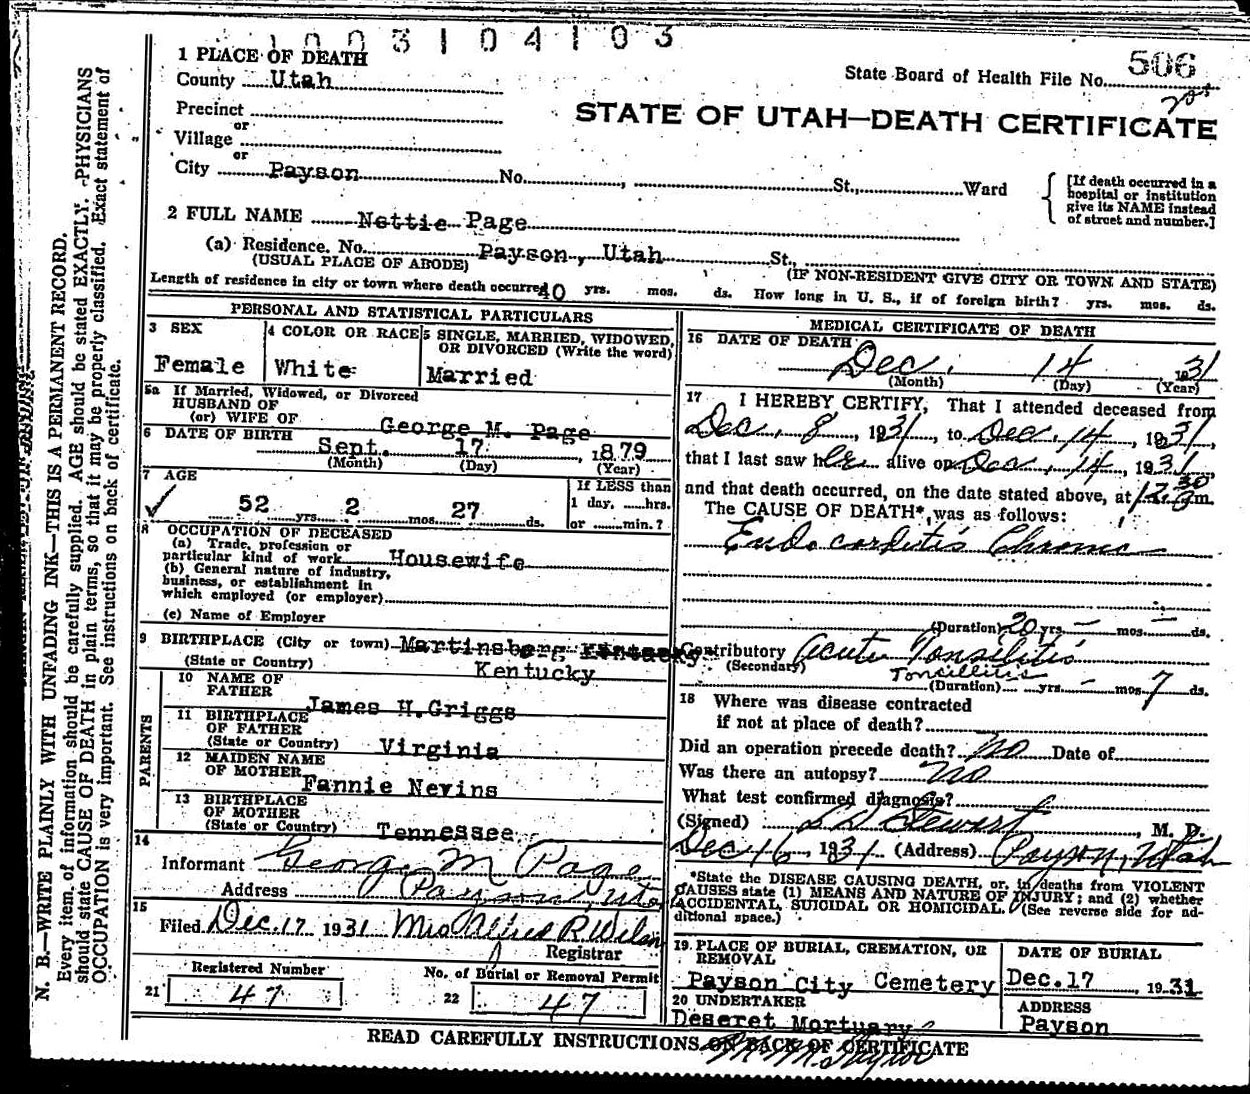 1003104103
1 PLACE OF DEATH
County Utah
State Board of Health File No. 506
Precinct
or
Village
STATE OF UTAH—DEATH CERTIFICATE
or
City Payson No. , St., Ward
[If death occurred in a hospital or institution give its NAME instead of street and number.]
2 FULL NAME Nettie Page
(a) Residence. No. Payson, Utah St.,
(USUAL PLACE OF ABODE) (IF NON-RESIDENT GIVE CITY OR TOWN AND STATE)
Length of residence in city or town where death occurred 40 yrs. mos. ds. How long in U. S., if of foreign birth? yrs. mos. ds.
PERSONAL AND STATISTICAL PARTICULARS
3 SEX
Female
4 COLOR OR RACE
White
5 SINGLE, MARRIED, WIDOWED,
OR DIVORCED (Write the word)
Married
5a If Married, Widowed, or Divorced
HUSBAND OF
(or) WIFE OF George M. Page
6 DATE OF BIRTH Sept. 17, 1879
(Month) (Day) (Year)
7 AGE
52 yrs. 2 mos. 27 ds.
If LESS than
1 day, hrs.
or min.?
8 OCCUPATION OF DECEASED
(a) Trade, profession or
particular kind of work Housewife
(b) General nature of industry,
business, or establishment in
which employed (or employer)
(c) Name of Employer
9 BIRTHPLACE (City or town) Martinsberg Kentucky
(State or Country) Kentucky
PARENTS
10 NAME OF
FATHER James H. Griggs
11 BIRTHPLACE
OF FATHER
(State or Country) Virginia
12 MAIDEN NAME
OF MOTHER Fannie Nevins
13 BIRTHPLACE
OF MOTHER
(State or Country) Tennessee
14
Informant George M Page
Address Payson, Uta
15
Filed Dec. 17 1931 Mrs Alfred R. Wilson
Registrar
Registered Number
21 47
No. of Burial or Removal Permit
22 47
MEDICAL CERTIFICATE OF DEATH
16 DATE OF DEATH
Dec. 14, 1931
(Month) (Day) (Year)
17 I HEREBY CERTIFY, That I attended deceased from
Dec. 8, 1931, to Dec. 14, 1931,
that I last saw her alive on Dec. 14, 1931,
and that death occurred, on the date stated above, at 12:30 m.
The CAUSE OF DEATH*, was as follows:
Endocarditis Chronic
(Duration) 20 yrs. — mos. — ds.
Contributory Acute Tonsilitis
(Secondary) Toncillitis
(Duration) yrs. — mos. 7 ds.
18 Where was disease contracted
if not at place of death?
Did an operation precede death? No Date of
Was there an autopsy? No
What test confirmed diagnosis?
(Signed) L D Stewart, M. D.
Dec 16, 1931 (Address) Payson, Utah
*State the DISEASE CAUSING DEATH, or, in deaths from VIOLENT
CAUSES state (1) MEANS AND NATURE OF INJURY; and (2) whether
ACCIDENTAL, SUICIDAL OR HOMICIDAL. (See reverse side for ad-
ditional space.)
19. PLACE OF BURIAL, CREMATION, OR
REMOVAL
Payson City Cemetery
DATE OF BURIAL
Dec. 17, 1931
20 UNDERTAKER
Deseret Mortuary
ADDRESS
Payson
READ CAREFULLY INSTRUCTIONS ON BACK OF CERTIFICATE
N. B.—WRITE PLAINLY WITH UNFADING INK—THIS IS A PERMANENT RECORD.
Every item of information should be carefully supplied. AGE should be stated EXACTLY. PHYSICIANS
should state CAUSE OF DEATH in plain terms, so that it may be properly classified. Exact statement of
OCCUPATION is very important. See instructions on back of certificate.